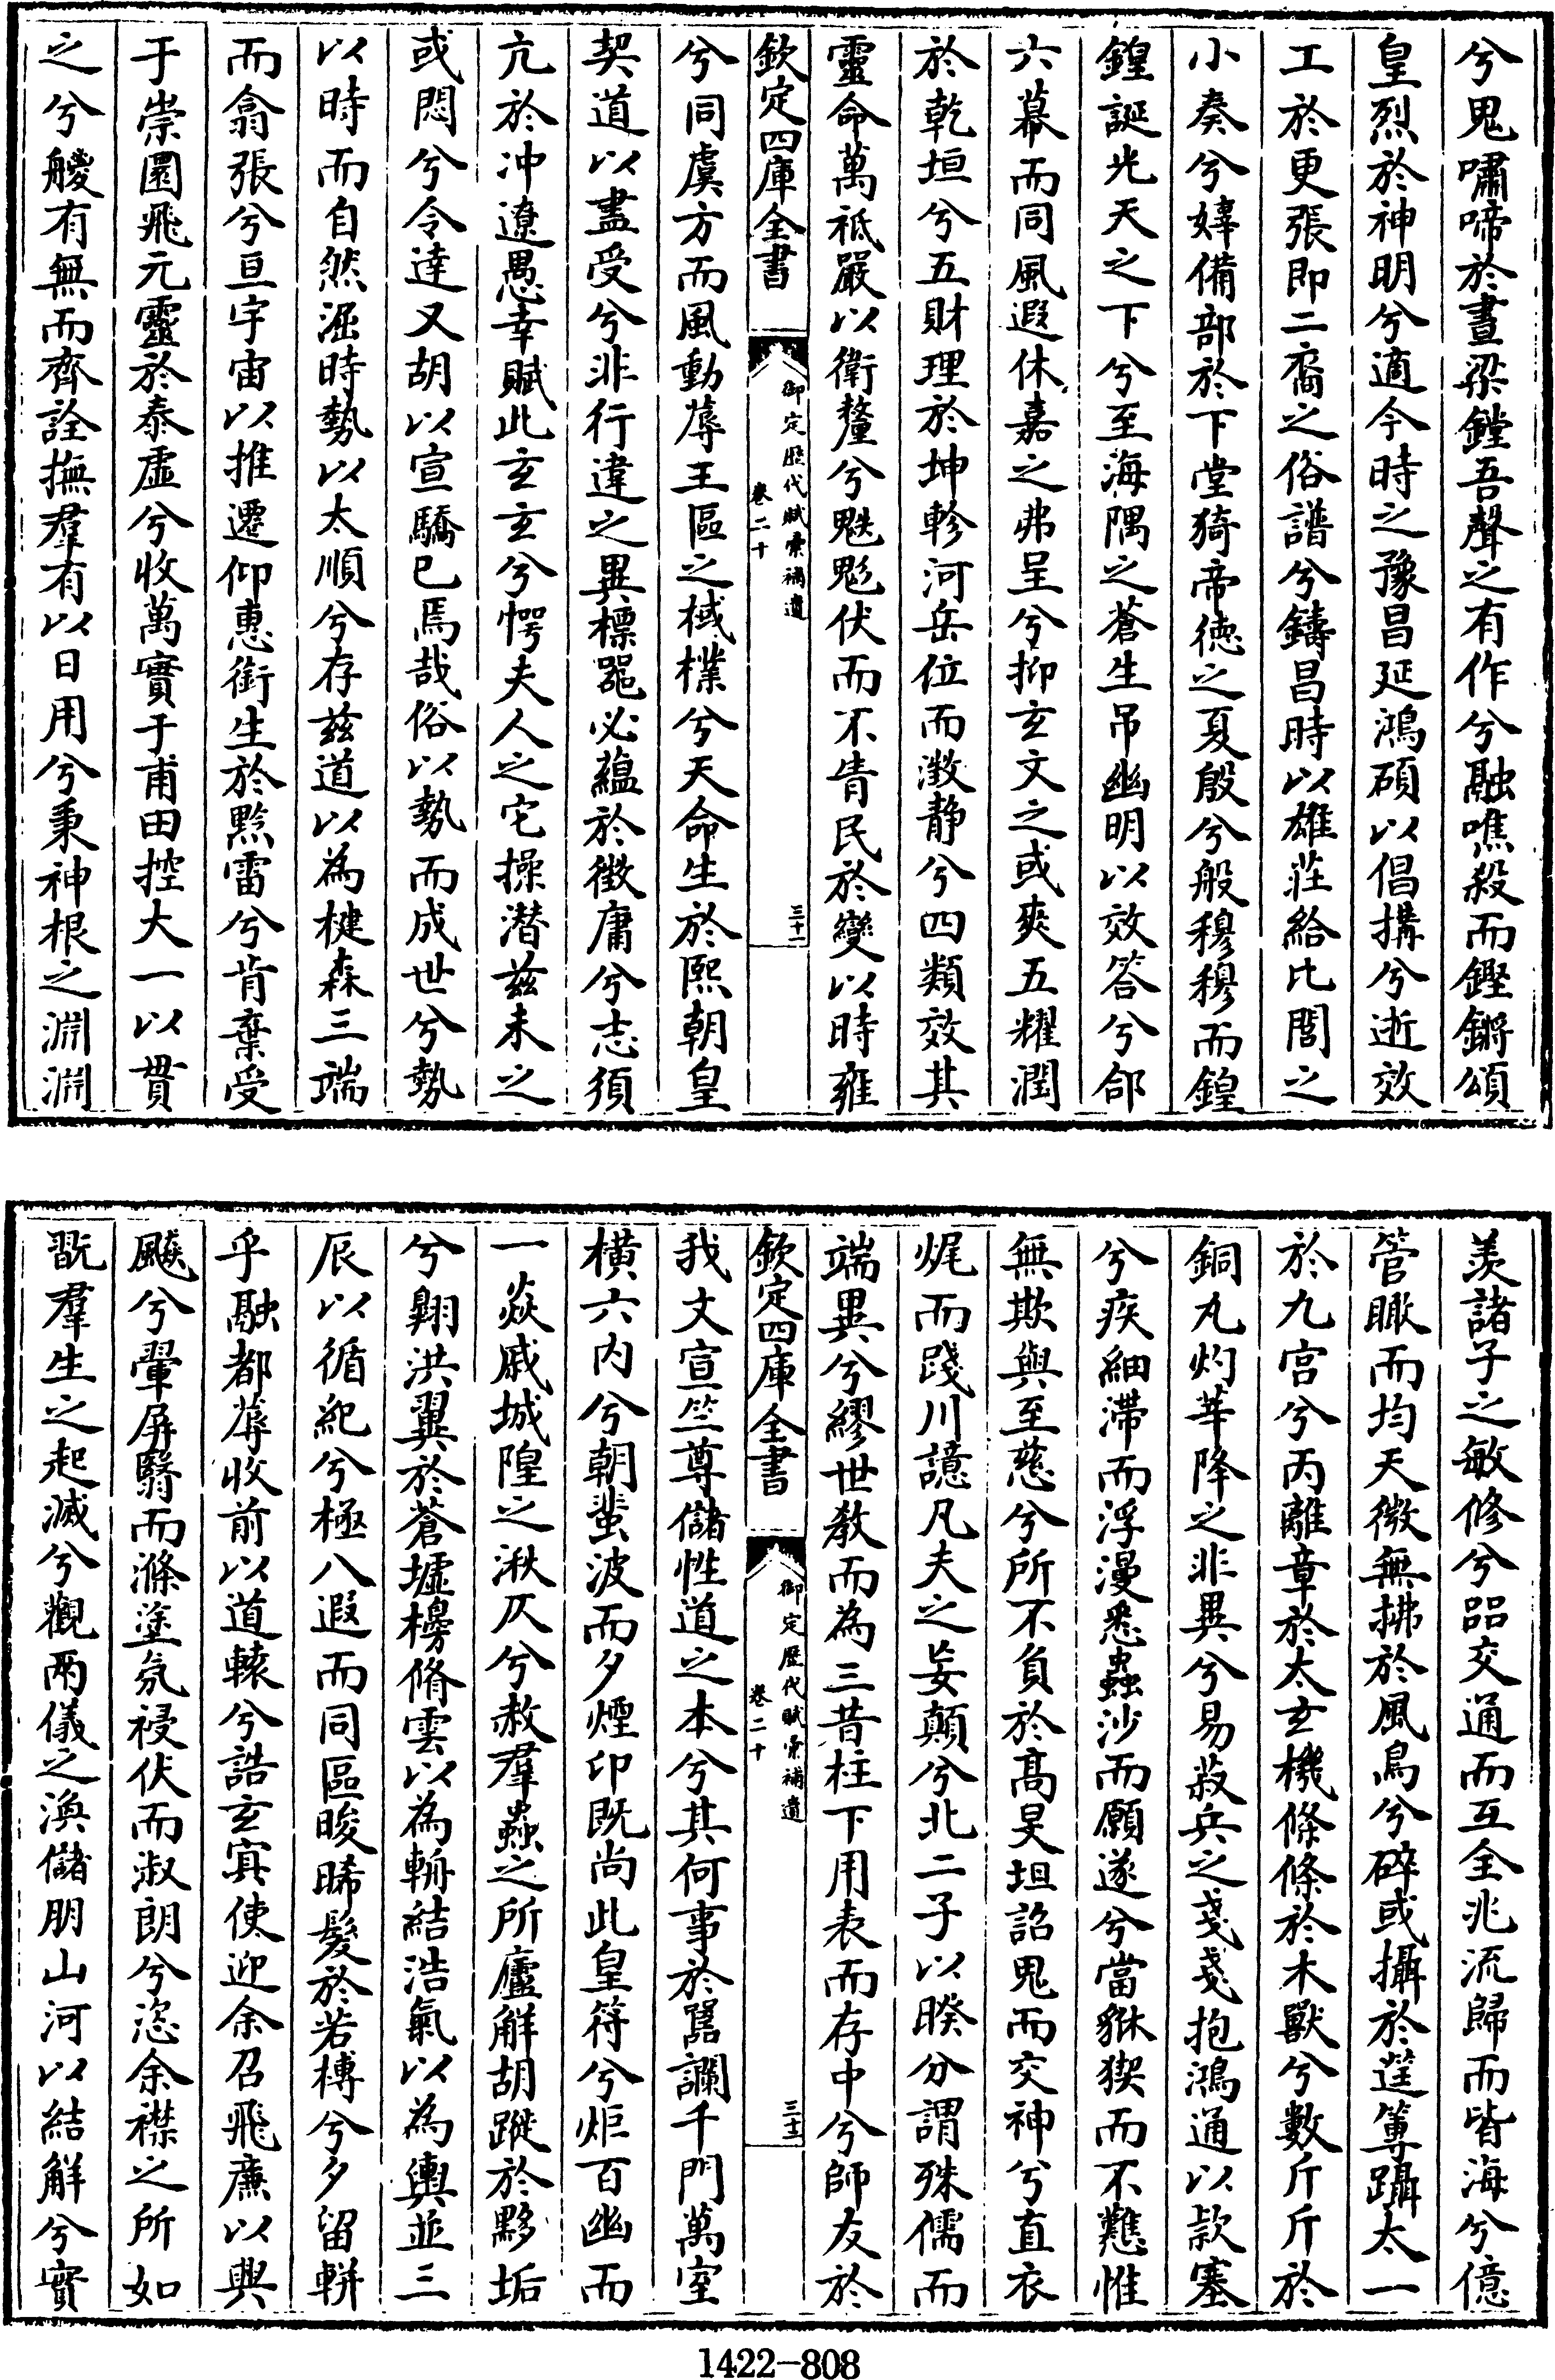 兮鬼嘯啼於晝梁鏜吾聲之有作兮融噍殺而鏗鏘頌
皇烈於神明兮適今時之豫昌延鴻碩以倡搆兮逝效
工於更張即二裔之俗譜兮鑄昌時以雄莊給比閭之
小奏兮婞備部於下堂猗帝德之夏殷兮般穆穆而鍠
鍠誕光天之下兮至海隅之蒼生吊幽明以效答兮郃
六幕而同風遐休嘉之弗呈兮抑玄文之或爽五耀潤
於乾垣兮五財理於坤軫河岳位而澂静兮四類效其
靈命萬祗嚴以衛釐兮魃鬽伏而不眚民於變以時雍
欽定四庫全書
御定歷代賦彚補遺
卷二十
三十一
兮同虞方而風動蓐王區之棫樸兮天命生於熙朝皇
契道以盡受兮非行違之異標噐必蘊於徴庸兮志須
亢於冲遼愚幸賦此玄玄兮愕夫人之它操潜兹未之
或悶兮令達又胡以宣驕已焉哉俗以勢而成世兮勢
以時而自然滛時勢以太順兮存兹道以為楗森三端
而翕張兮亘宇宙以推遷仰惠銜生於黙雷兮肯棄受
于崇圜飛元靈於泰虛兮收萬實于甫田控大一以貫
之兮艘有無而齊詮撫羣有以日用兮秉神根之淵淵
羡諸子之敏修兮品交通而互全兆流歸而皆海兮億
管瞰而均天微無拂於風鳥兮碎或攝於莛篿躡太一
於九宫兮丙離章於太玄機條條於木獸兮數斤斤於
銅丸灼莘降之非異兮易菽兵之戔戔抱鴻通以款塞
兮疾細滯而浮漫悉蟲沙而願遂兮當貅猰而不難惟
無欺與至慈兮所不負於髙旻坦詔鬼而交神兮直衣
娓而踐川譩凡夫之妄顛兮北二子以暌分謂殊儒而
端異兮繆世教而為三昔柱下用表而存中兮師友於
欽定四庫全書
御定歷代賦彚補遺
卷二十
三十二
我文宣竺尊儲性道之本兮其何事於嚚讕千門萬室
横六内兮朝蜚波而夕煙印既尚此皇符兮炬百幽而
一焱戚城隍之湫仄兮赦羣蝨之所廬觧胡蹤於黟垢
兮翺洪翼於蒼墟榜脩雲以為輧結浩氣以為輿並三
辰以循紀兮極八遐而同區晙晞髮於若榑兮夕留輧
乎融都蓐收前以道轅兮誥玄寘使迎余召飛㢘以與
飈兮翬屏翳而滌塗氛祲伏而淑朗兮恣余襟之所如
翫羣生之起滅兮觀兩儀之渙儲朋山河以結觧兮實
1422-808